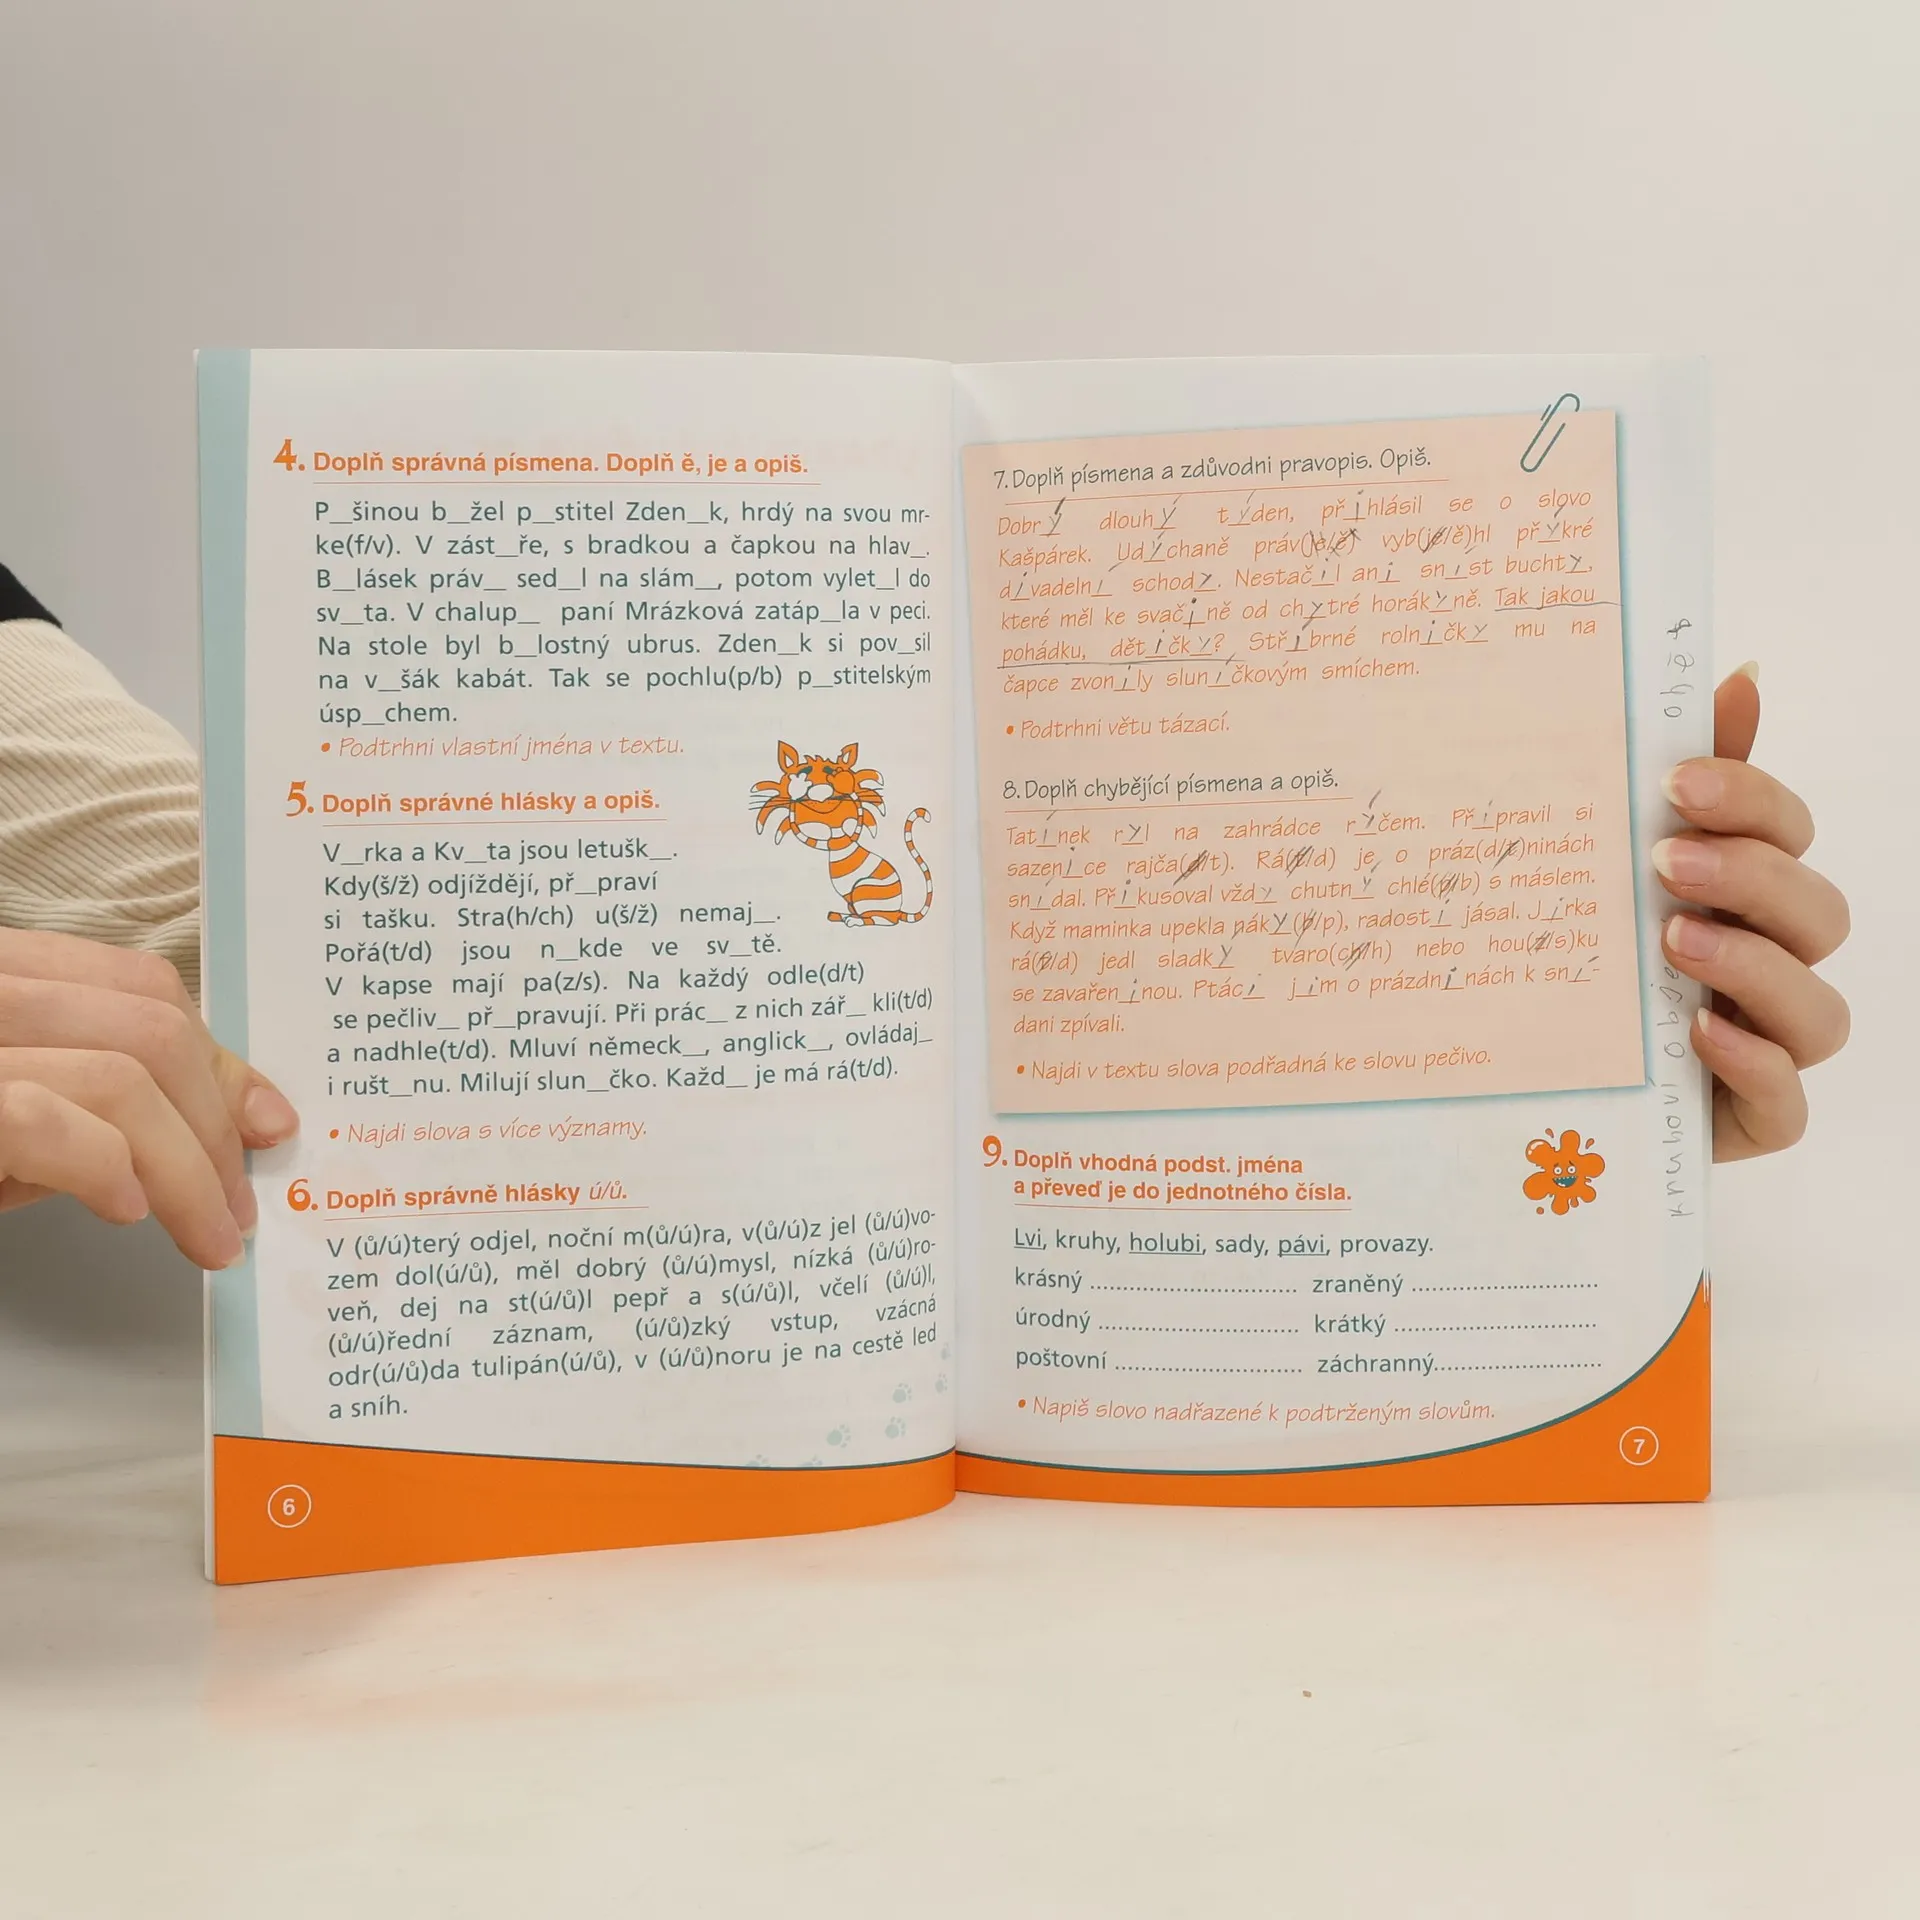 4. Doplň správná písmena. Doplň ě, je a opiš.
P_šinou b_žel p_stitel Zden_k, hrdý na svou mr-
ke(f/v). V zást_ře, s bradkou a čapkou na hlav_.
B_lásek práv_ sed_l na slám_, potom vylet_l do
sv_ta. V chalup_ paní Mrázková zatáp_la v peci.
Na stole byl b_lostný ubrus. Zden_k si pov_sil
na v_šák kabát. Tak se pochlu(p/b) p_stitelským
úsp_chem.
• Podtrhni vlastní jména v textu.
5. Doplň správné hlásky a opiš.
V_rka a Kv_ta jsou letušk_.
Kdy(š/ž) odjíždějí, př_praví
si tašku. Stra(h/ch) u(š/ž) nemaj_.
Pořá(t/d) jsou n_kde ve sv_tě.
V kapse mají pa(z/s). Na každý odle(d/t)
se pečliv_ př_pravují. Při prác_ z nich zář_ kli(t/d)
a nadhle(t/d). Mluví německ_, anglick_, ovládaj_
i rušt_nu. Milují slun_čko. Každ_ je má rá(t/d).
• Najdi slova s více významy.
6. Doplň správně hlásky ú/ů.
V (ů/ú)terý odjel, noční m(ů/ú)ra, v(ů/ú)z jel (ů/ú)vo-
zem dol(ú/ů), měl dobrý (ů/ú)mysl, nízká (ů/ú)ro-
veň, dej na st(ú/ů)l pepř a s(ú/ů)l, včelí (ů/ú)l,
(ů/ú)řední záznam, (ú/ů)zký vstup, vzácná
odr(ú/ů)da tulipán(ú/ů), v (ú/ů)noru je na cestě led
a sníh.
6
7. Doplň písmena a zdůvodni pravopis. Opiš.
Dobrý dlouhý týden, přihlásil se o slovo
Kašpárek. Udýchaně práv(je/ě) vyb(je/ě)hl přýkré
divadelní schody. Nestačil ani sníst buchty,
které měl ke svačině od chytré horákyně. Tak jakou
pohádku, dětičky? Stříbrné rolničky mu na
čapce zvonily sluníčkovým smíchem.
• Podtrhni větu tázací.
8. Doplň chybějící písmena a opiš.
Tatínek ryl na zahrádce rýčem. Připravil si
sazenice rajča(d/t). Rá(t/d) je o práz(d/t)ninách
snídal. Přikusoval vždy chutný chlé(p/b) s máslem.
Když maminka upekla páky(b/p), radostí jásal. Jirka
rá(t/d) jedl sladký tvaro(ch/h) nebo hou(z/s)ku
se zavařeninou. Ptáci jim o prázdninách k sní-
dani zpívali.
• Najdi v textu slova podřadná ke slovu pečivo.
9. Doplň vhodná podst. jména
a převeď je do jednotného čísla.
Lvi, kruhy, holubi, sady, pávi, provazy.
krásný .............................. zraněný ...........................
úrodný ............................. krátký .............................
poštovní ........................... záchranný........................
• Napiš slovo nadřazené k podtrženým slovům.
7